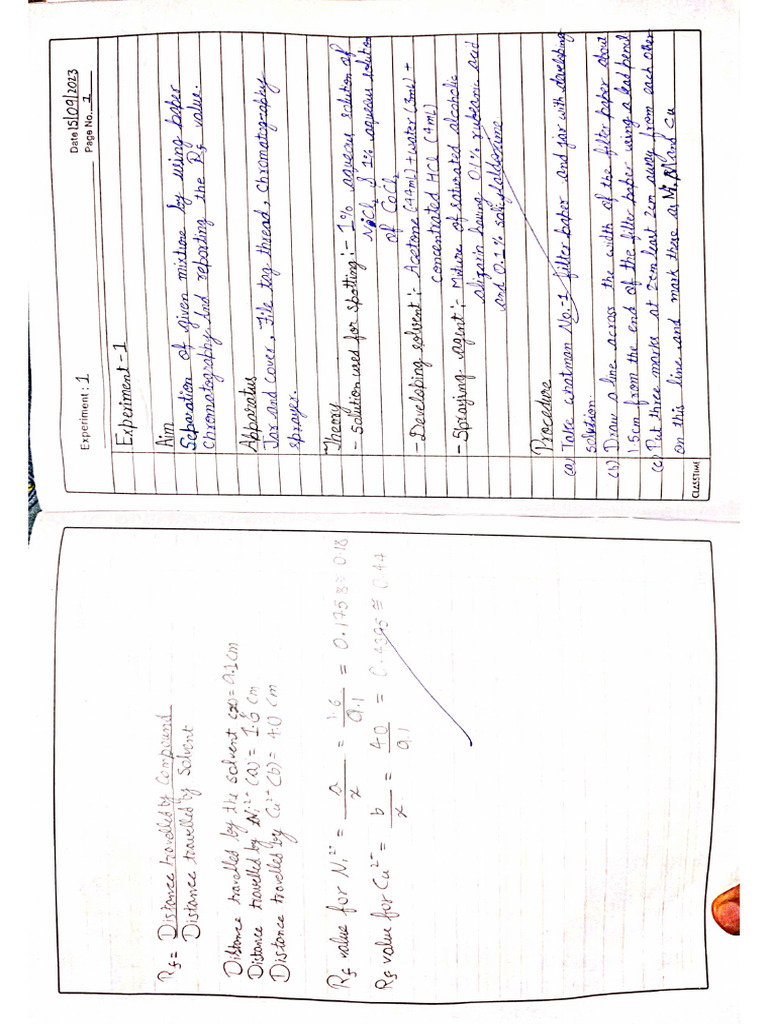 Experiment : 1
Date 15/09/2023
Page No. 1
Experiment - 1
Aim
Separation of given mixture by using paper
Chromatography. And reporting the Rf value.
Apparatus
Jar and cover, File tag thread, Chromatography
sprayer.
Theory
- Solution used for spotting :- 1% aqueous solution of
NiCl2 & 1% aqueous solution
of CoCl2
- Developing solvent :- Acetone (44mL) + water (3mL) +
concentrated HCl (4mL)
- Spraying agent :- Mixture of saturated alcoholic
alizarin having 0.1% rubeanic acid
and 0.1% salicylaldoxime
Procedure
(a) Take whatman No.-1 filter paper and jar with developing
solution.
(b) Draw a line across the width of the filter paper about
1.5cm from the end of the filter paper using a lead pencil
(c) Put three marks at 2cm least 2cm away from each other
on this line and mark these as Ni, M and Cu
CLASSTIME
Rf = Distance travelled by Compound
Distance travelled by Solvent
Distance travelled by the solvent (x) = 9.1 cm
Distance travelled by Ni2+ (a) = 1.6 cm
Distance travelled by Cu2+ (b) = 4.0 cm
Rf value for Ni2+ = a/x = 1.6/9.1 = 0.1758 ≅ 0.18
Rf value for Cu2+ = b/x = 4.0/9.1 = 0.4395 ≅ 0.44